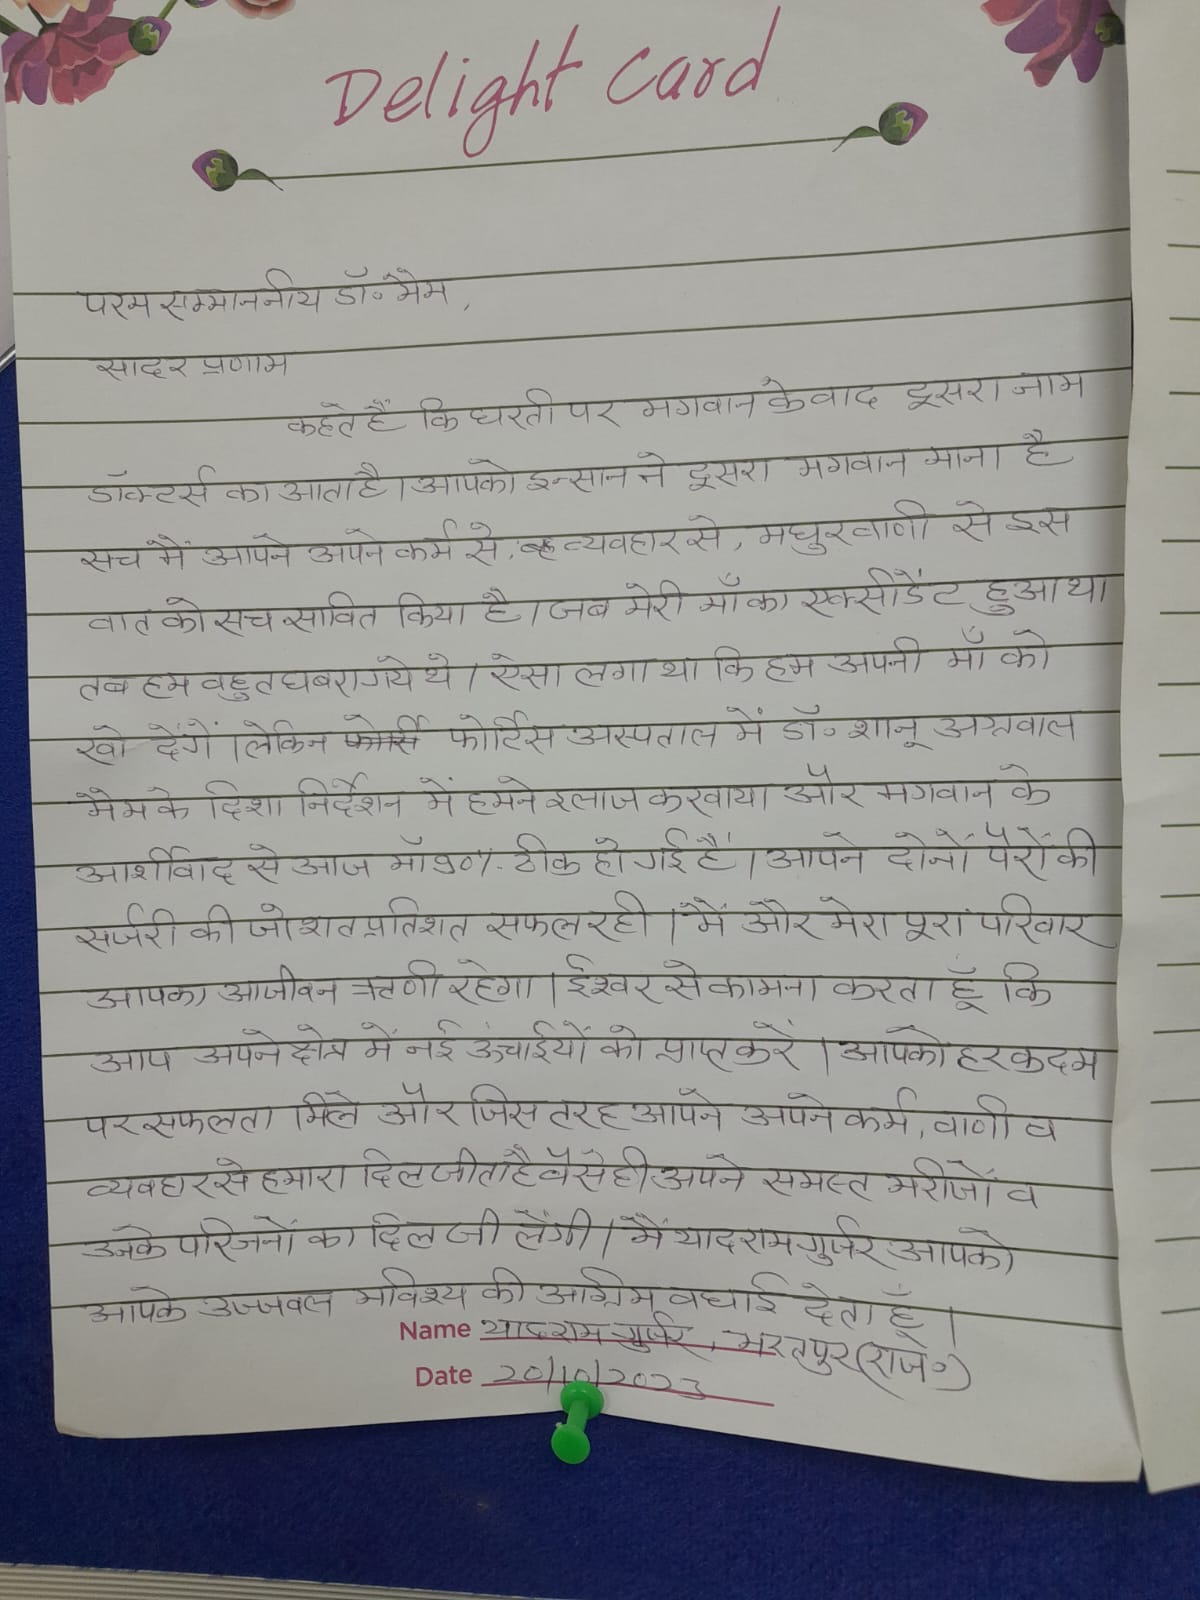 Delight Card
परम सम्माननीय डॉ॰ मैम,
सादर प्रणाम
कहते हैं कि धरती पर भगवान के बाद दूसरा नाम
डॉक्टर्स का आता है। आपको इन्सान ने दूसरा भगवान माना है
सच में आपने अपने कर्म से, व्यवहार से, मधुर वाणी से इस
बात को सच साबित किया है। जब मेरी माँ का एक्सीडेंट हुआ था
तब हम बहुत घबरा गये थे। ऐसा लगा था कि हम अपनी माँ को
खो देंगें। लेकिन फोर्टिस अस्पताल में डॉ॰ शानू अग्रवाल
मैम के दिशा निर्देशन में हमने इलाज करवाया और भगवान के
आर्शीवाद से आज माँ 90% ठीक हो गई हैं। आपने दोनों पैरों की
सर्जरी की जो शत प्रतिशत सफल रही। मैं और मेरा पूरा परिवार
आपका आजीवन ऋणी रहेगा। ईश्वर से कामना करता हूँ कि
आप अपने क्षेत्र में नई ऊंचाईयों को प्राप्त करें। आपको हर कदम
पर सफलता मिले और जिस तरह आपने अपने कर्म, वाणी व
व्यवहार से हमारा दिल जीता है वैसे ही अपने समस्त मरीजों व
उनके परिजनों का दिल जी लेंगी। मैं यादराम गुर्जर आपको
आपके उज्जवल भविश्य की अग्रिम बधाई देता हूँ।
Name यादराम गुर्जर, भरतपुर (राज॰)
Date 20/10/2023